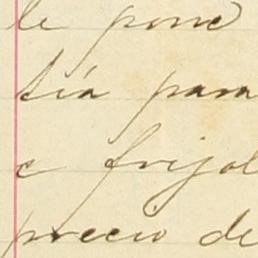 le pone
tía para
e frijol
precio de